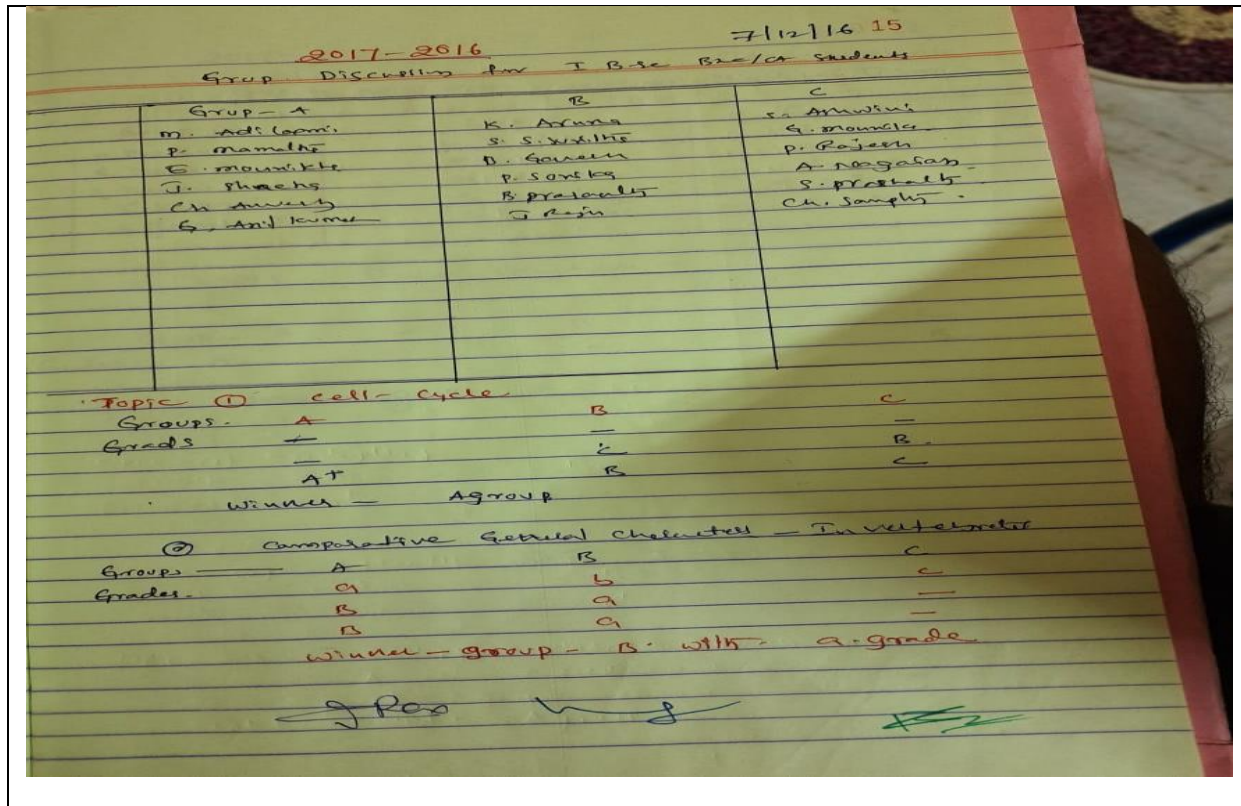 7/12/16 15
2017-2016
Grup Discussion for I B.sc Bzc/CA Students
Grup - A B C
m. Adi Laxmi. K. Aruna S. Ashwini
P. mamatha S. G. mounika
G. mounikha D. Ganesh P. Rajesh
J. P. A.
Ch B. prasanth S. prashanth
G. Anil kumar J Raju Ch. Sampth.
Topic ① cell- cycle
Groups. A B C
Grads — — —
— C B.
A+ B C
winner — Agroup
② Comparative General Charecters — Invertebrates
Groups — A B C
Grades. a b c
B a —
B a —
winner - group - B. with - a. grade
J Rao